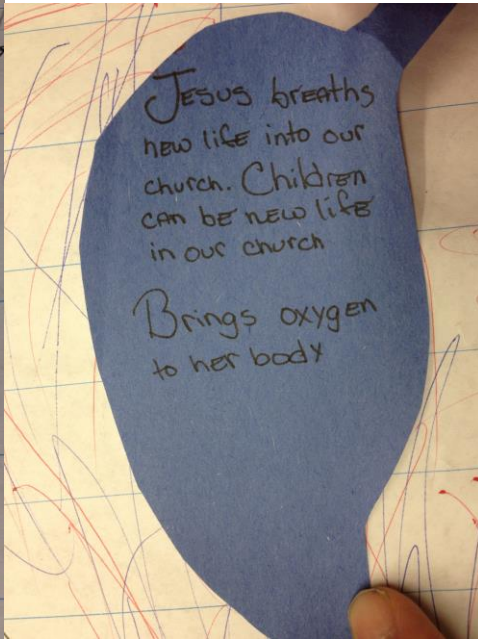 Jesus breaths
new life into our
church. Children
can be new life
in our church
Brings oxygen
to her body